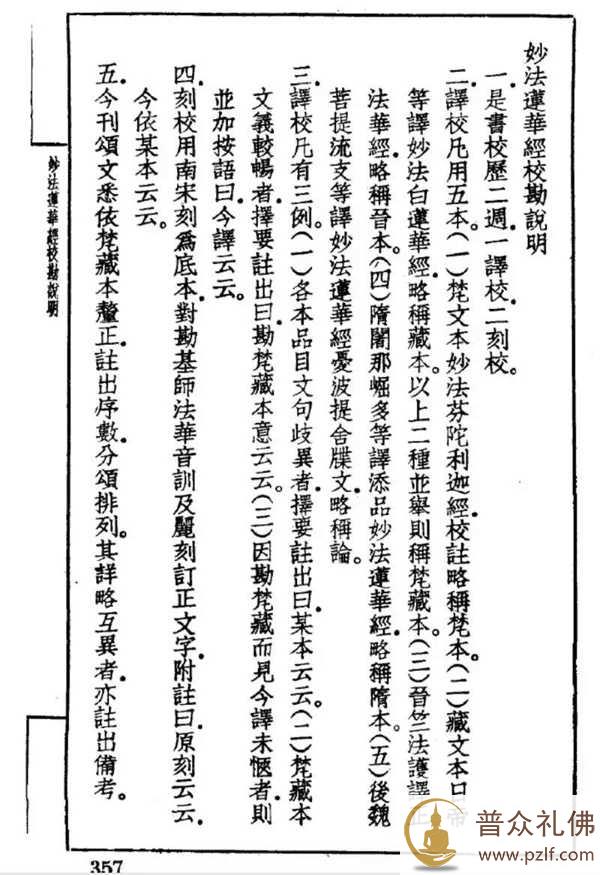 妙法蓮華經校勘說明
一.是書校歷二週一譯校.二刻校。
二.譯校凡用五本.(一)梵文本妙法芬陀利迦經校註略稱梵本。(二)藏文本帝
等譯妙法白蓮華經.略稱藏本.以上二種並舉則稱梵藏本。(三)晉竺法護譯正
法華經.略稱晉本。(四)隋闍那崛多等譯添品妙法蓮華經.略稱隋本。(五)後魏
菩提流支等譯妙法蓮華經憂波提舍牒文.略稱論。
三.譯校凡有三例。(一)各本品目文句歧異者.擇要註出曰某本云云。(二)梵藏本
文義較暢者.擇要註出曰勘梵藏本意云云。(三)因勘梵藏而見今譯未愜者.則
並加按語曰.今譯云云。
四.刻校用南宋刻爲底本.對勘基師法華音訓及麗刻訂正文字.附註曰.原刻云云.
今依某本云云。
五.今刊頌文悉依梵藏本釐正.註出序數.分頌排列。其詳略互異者.亦註出備考。
妙法蓮華經校勘說明
357
普众礼佛
www.pzlf.com